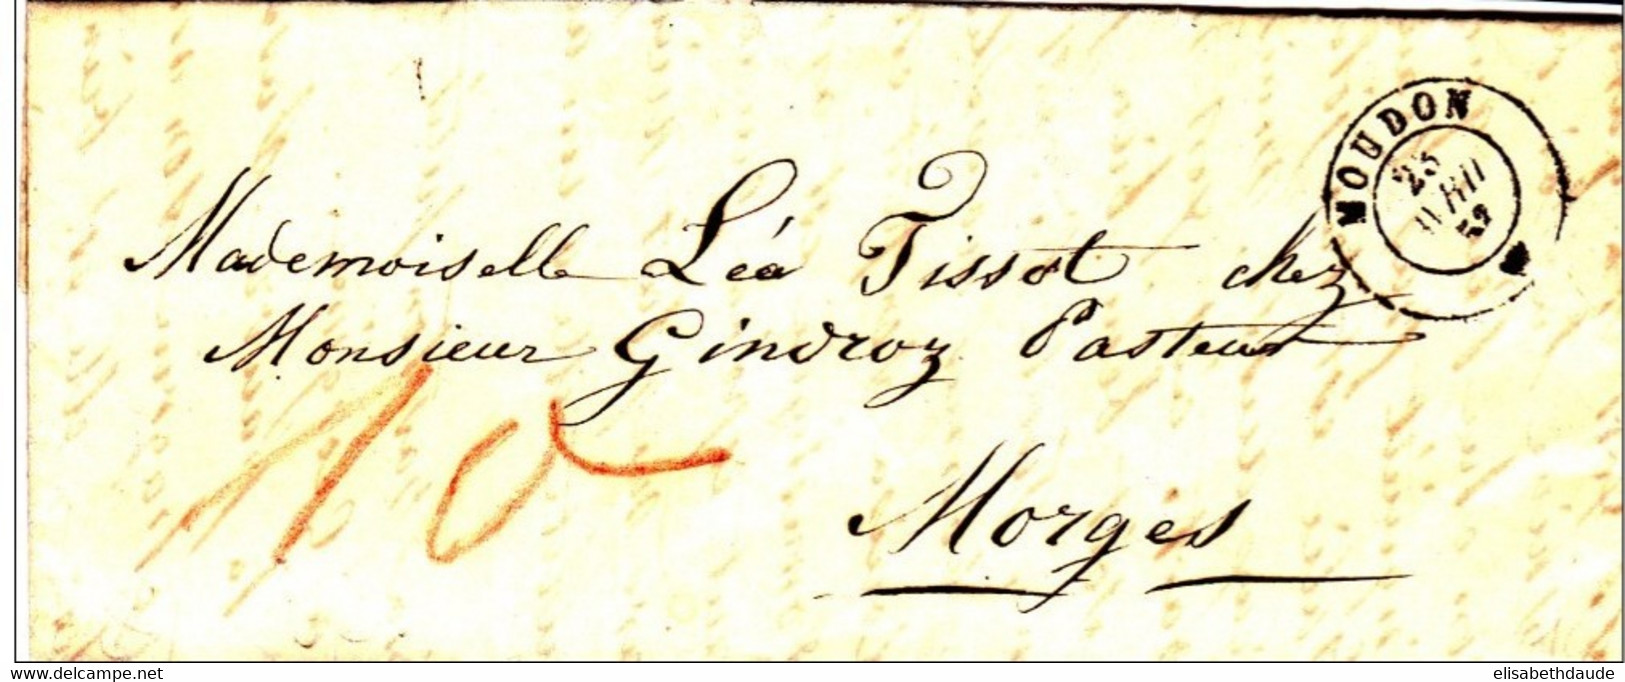 MOUDON
25
52
Mademoiselle Léa Tissot chez
Monsieur Gindroz Pasteur
10
Morges
www.delcampe.net
elisabethdaude